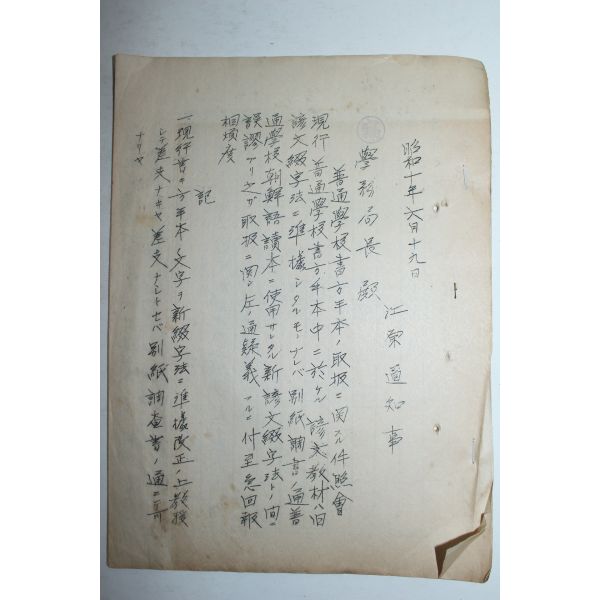 昭和十年六月十九日
江原道知事
學務局長殿
普通學校書方手本ノ取扱ニ関スル件照會
現行普通學校書方手本中ニ於ケル諺文教材ハ旧
諺文綴字法ニ準據シタルモノナレバ別紙調書ノ通普
通學校朝鮮語讀本ニ使用サレタル新諺文綴字法トノ間ニ
誤謬アリ之ガ取扱ニ関シ左ノ通疑義アルニ付至急回報
相煩度
記
一現行書キ方手本ノ文字ヲ新綴字法ニ準據改正ノ上教授
シテ差支ナキヤ差支ナシトセバ別紙調査書ノ通ニテ可
ナリヤ